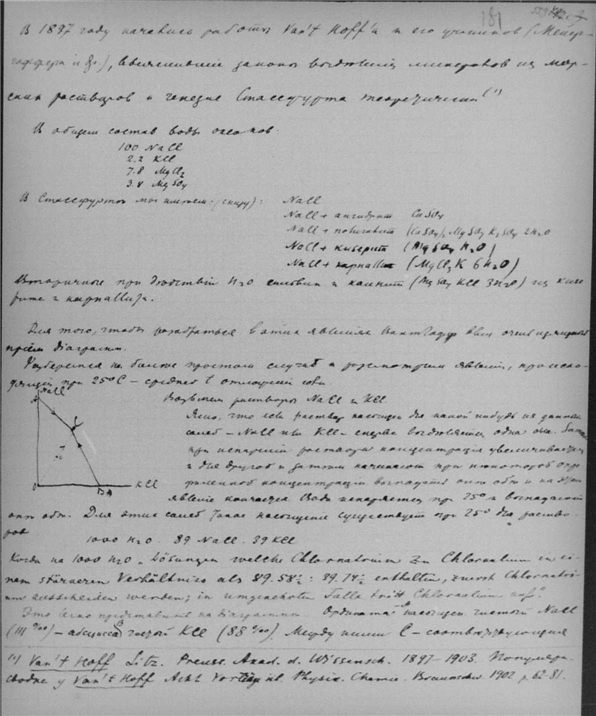 181
В 1897 году начались работы Van't Hoff'a и его учеников (Мейер-
гоффера и др.), выяснившие законы выделения минералов из мор-
ских растворов и генезис Стассфурта теоретический (1)
В общем состав воды океанов:
100 NaCl
2.2 KCl
7.8 MgCl2
3.8 MgSO4
В Стассфуртом мы имеем: (снизу): NaCl
NaCl + ангидрит CaSO4
NaCl + полигалит (CaSO4)2 MgSO4 K2SO4 2H2O
NaCl + кизерит (MgSO4 H2O)
NaCl + карналлит (MgCl3K 6H2O)
Вторичные при действии H2O сильвин и каинит (MgSO4 KCl 3H2O) из кизе-
рита и карналлита.
Для того, чтобы разобраться в этих явлениях Вант Гофф ввел очень
приём диаграмм.
на более простом случае и рассмотрим явления, происхо-
дящие при 25°C – средней t
NaCl
Возьмем растворы NaCl и KCl
Ясно, что если раствор насыщен для какой нибудь из данных
солей – NaCl или KCl – сперва выделяется одна она. Затем
при испарении раствора концентрация увеличивается
и для другой и затем начинает при некоторой опре-
деленной концентрации выпадать они обе и на этом
явление кончается. Вода испаряется при 25° и выпадают
C
A
B
O
KCl
они обе. Для этих солей такое насыщение существует при 25° для раство-
ров 1000 H2O . 89 NaCl . 39 KCl
Когда на 1000 H2O. Lösungen welche Chlornatrium zu Chlorkalium in ei-
nem stärkeren Verhältniss als 89.58½ : 39.14½ enthalten, zuerst Chlornatri-
um ausscheiden werden; in umgekehrten Falle tritt Chlorkalium auf.
Это легко представить на диаграмме. Ордината – насыщен чистый NaCl
(111 ‰) – абсцисса чистой KCl (88 ‰). Между ними C – соответствующая
(1) Van't Hoff Sitz. Preuss. Akad. d. Wissensch. 1897–1903. Популяр-
сводка у Van't Hoff Acht Vorträge üb. Physik. Chemie. Braunschw. 1902 p. 62-81.